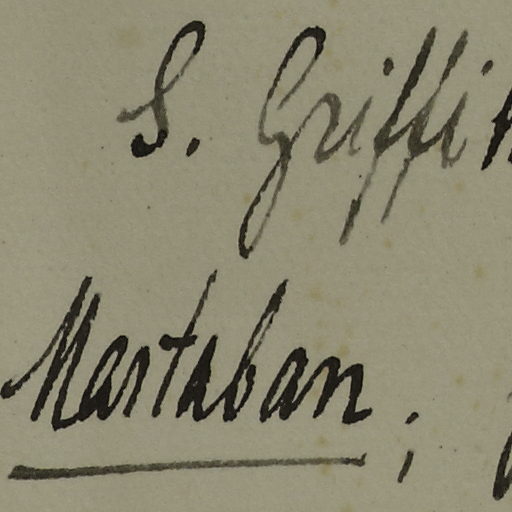 S. Griffi
Martaban;